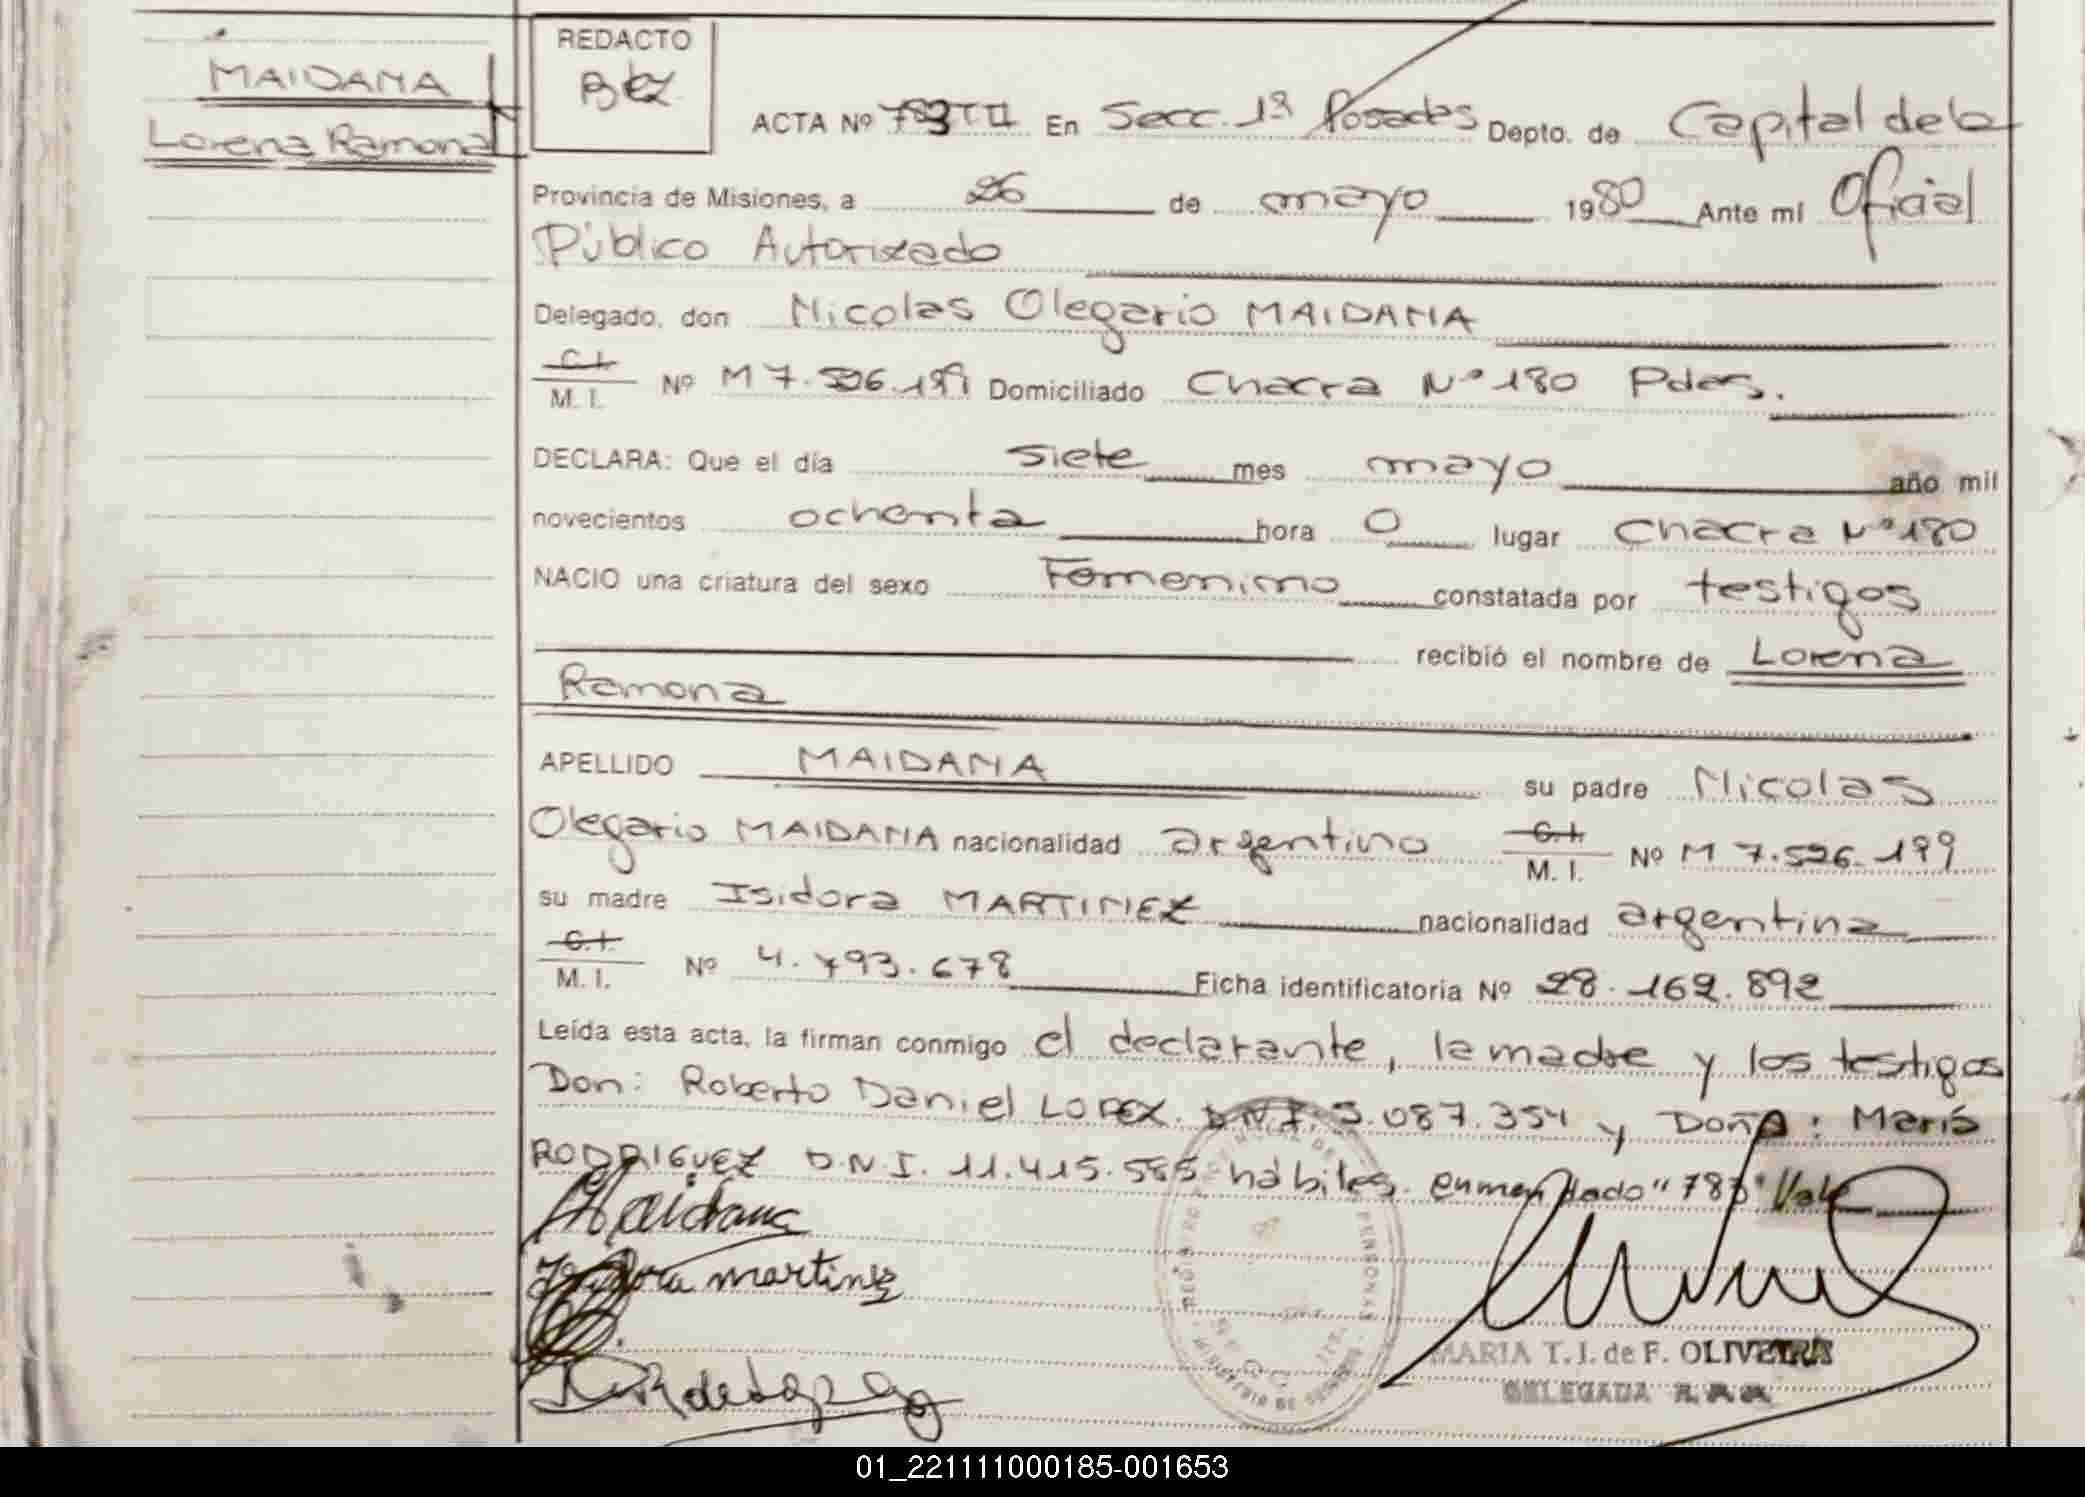 MAIDANA
Lorena Ramona
REDACTO
ACTA Nº 783 TII En Secc. 1ª Posadas Depto. de Capital de la
Provincia de Misiones, a 26 de mayo 1980 Ante mí Oficial
Público Autorizado
Delegado, don Nicolas Olegario MAIDANA
C.I.
M. I. Nº M 7.596.199 Domiciliado Chacra Nº 180 Pdas.
DECLARA: Que el día siete mes mayo año mil
novecientos ochenta hora 0 lugar Chacra Nº 180
NACIO una criatura del sexo Femenino constatada por testigos
recibió el nombre de Lorena
Ramona
APELLIDO MAIDANA su padre Nicolas
Olegario MAIDANA nacionalidad argentino C.I. M. I. Nº M 7.596.199
su madre Isidora MARTINEZ nacionalidad argentina
C.I.
M. I. Nº 4.793.678 Ficha identificatoria Nº 28.162.892
Leída esta acta, la firman conmigo el declarante, la madre y los testigos
Don: Roberto Daniel LOPEZ. D.N.I. 5.087.354 y Doña: María
RODRIGUEZ D.N.I. 11.415.585 hábiles. enmendado "783" Vale
Maidana
Isidora martinez
MARIA T. J. de F. OLIVEIRA
DELEGADA
01_221111000185-001653